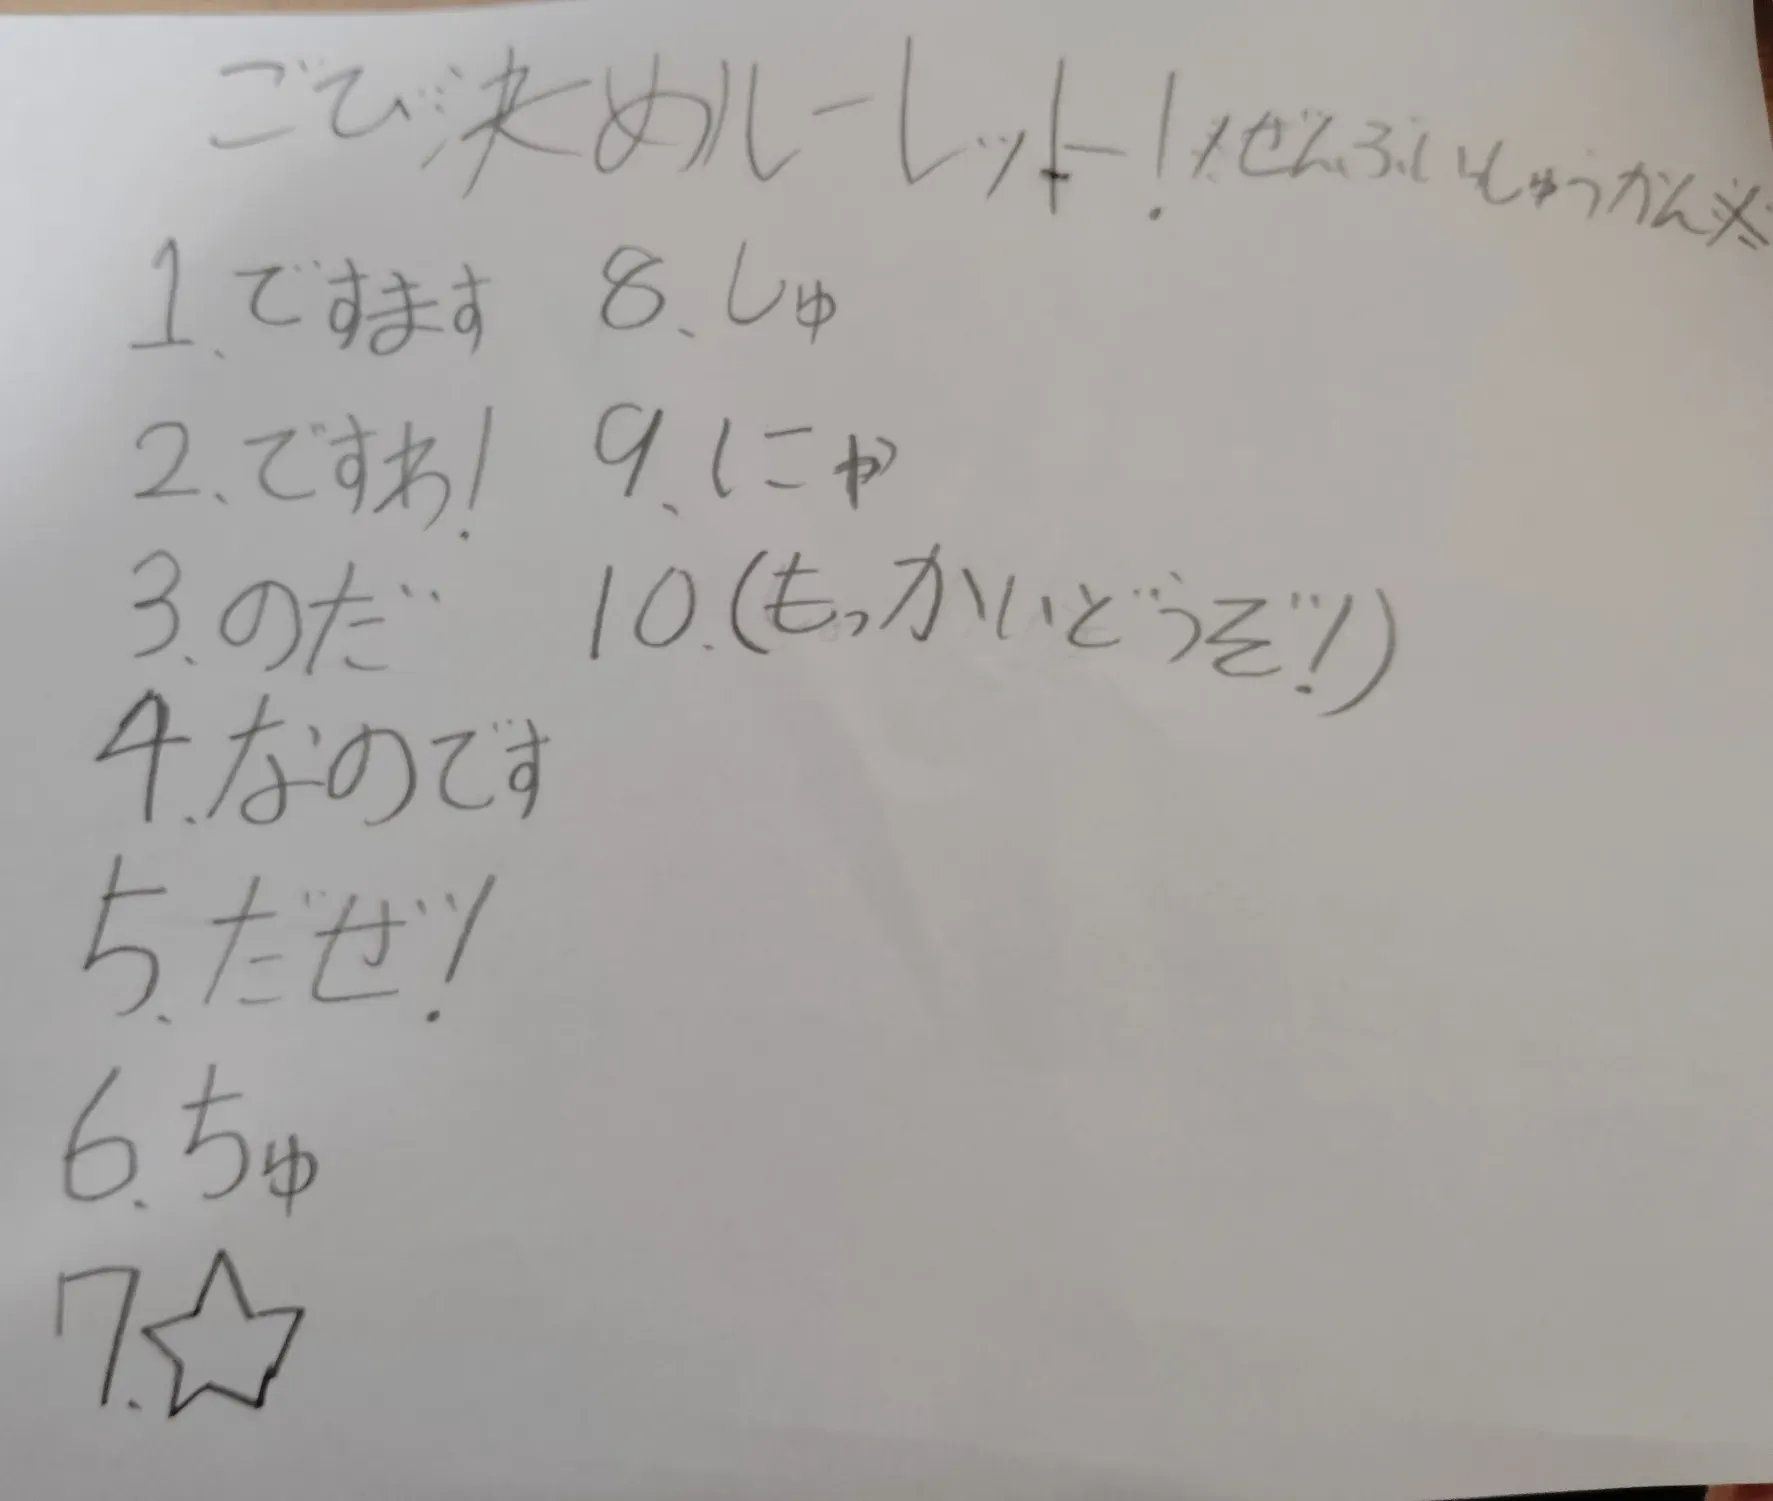 ごび決めルーレット！※ぜんぶいっしゅうかん※
1.ですます
2.ですわ！
3.のだ
4.なのです
5.だぜ！
6.ちゅ
7.☆
8.しゅ
9.にゃ
10.(もっかいどうぞ！)